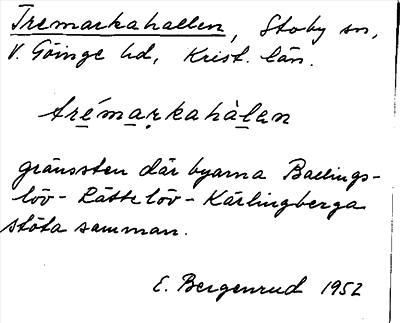 Tremarkahallen, Stoby sn,
V. Göinge hd, Krist. län.
trémarkahàlen
gränssten där byarna Ballings-
löv - Rättelöv - Kärlingberga
stöta samman.
E. Bergenrud 1952